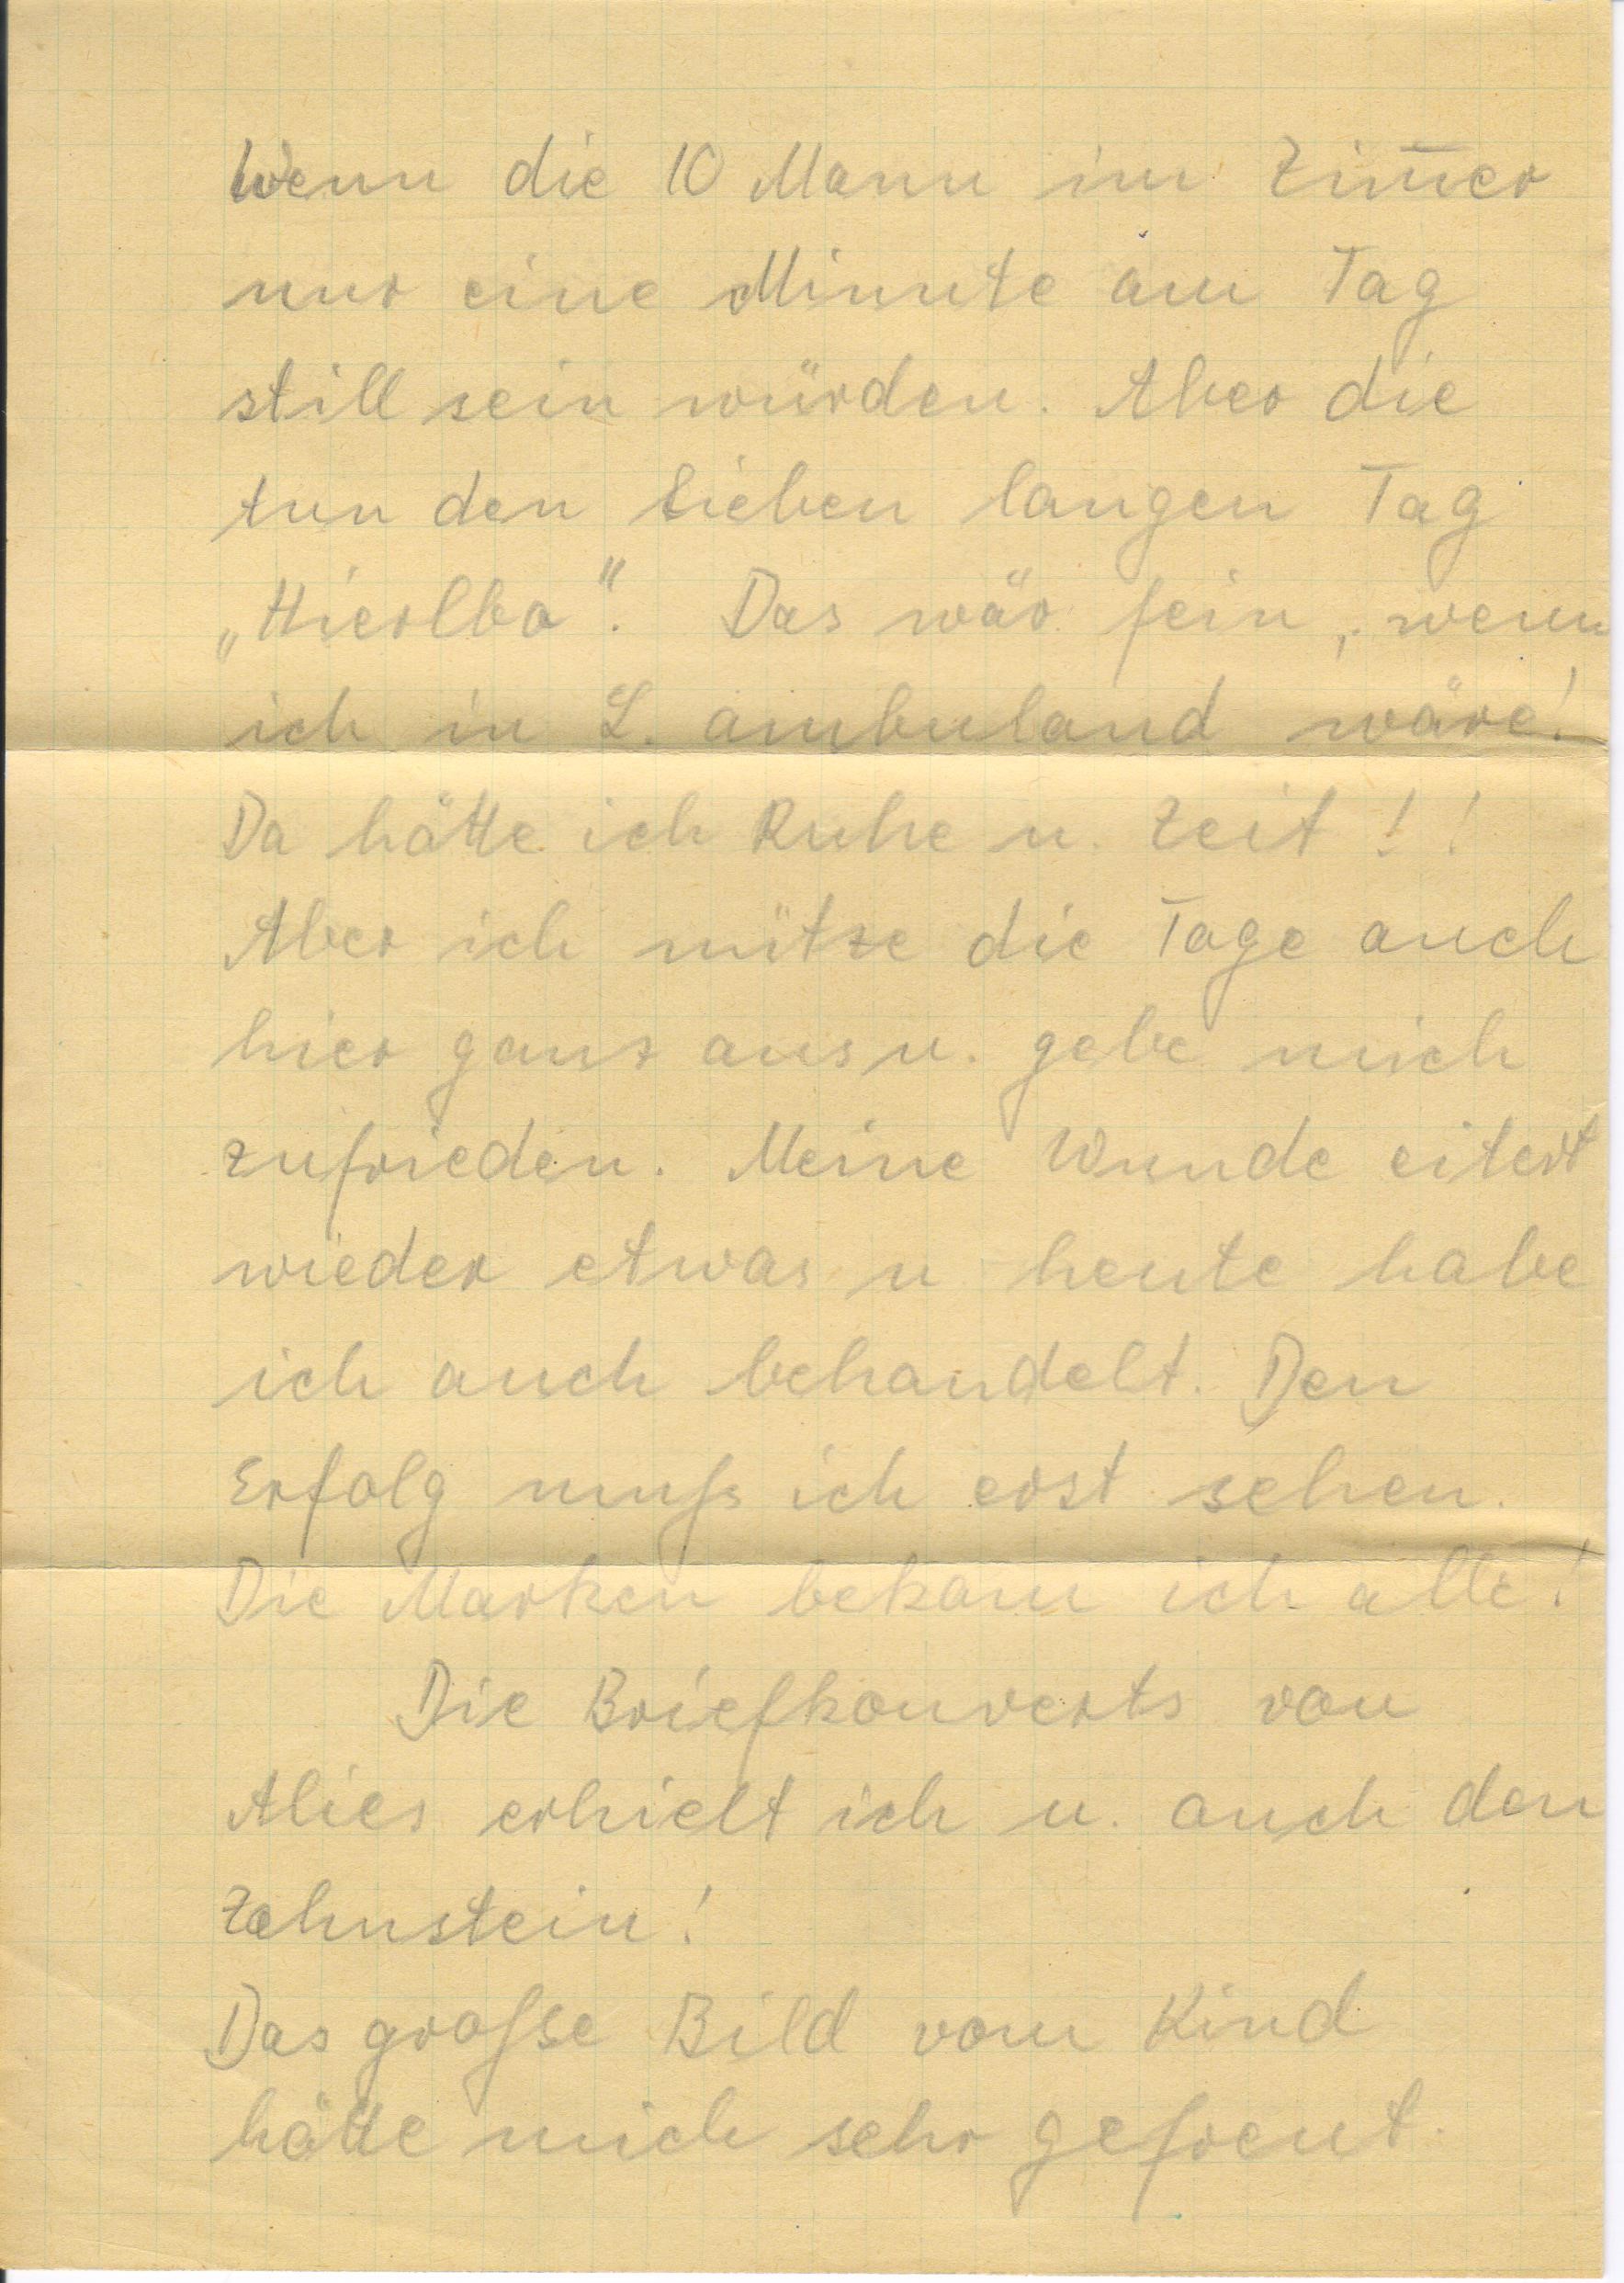 Wenn die 10 Mann im Zim̅er
nur eine Minute am Tag
still sein würden. Aber die
tun den lieben langen Tag
„Hierlba“. Das wär fein, wenn
ich in L. ambuland wäre!
Da hätte ich Ruhe u. Zeit!!
Aber ich nütze die Tage auch
hier ganz aus u. gebe mich
zufrieden. Meine Wunde eitert
wieder etwas u heute habe
ich auch behandelt. Den
Erfolg muß ich erst sehen.
Die Marken bekam ich alle!
Die Briefkouverts von
Alies erhielt ich u. auch den
Zahnstein!
Das große Bild vom Kind
hätte mich sehr gefreut.